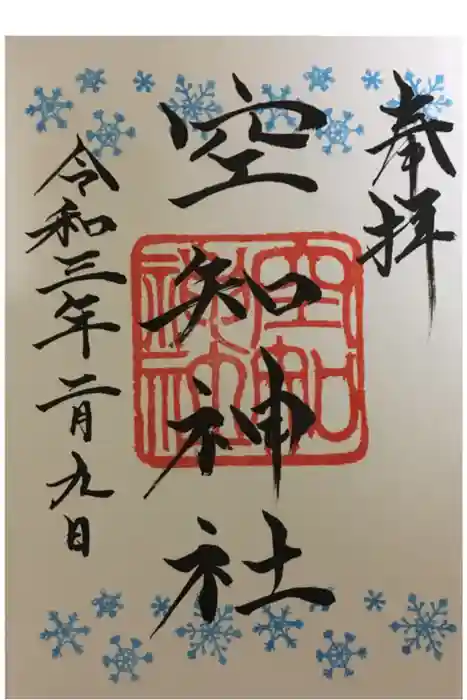 奉拝
空知神社
空知
神社
令和三年二月九日